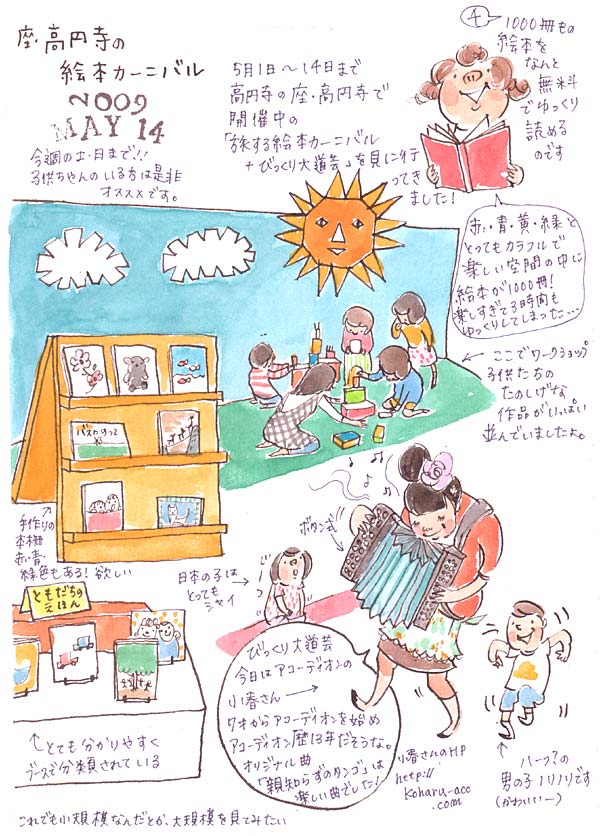 座・高円寺の
絵本カーニバル
2009
MAY 14
今週の土・日まで!!
子供ちゃんのいる方は是非
オススメです。
5月1日〜14日まで
高円寺の座・高円寺で
開催中の
「旅する絵本カーニバル
+びっくり大道芸」を見に行
ってき
ました!
4
1000冊もの
絵本を
なんと
無料
でゆっくり
読める
のです
赤・青・黄・緑と
とってもカラフルで
楽しい空間の中に
絵本が1000冊!
楽しすぎて3時間も
ゆっくりしてしまった…
← ここでワークショップ
子供たちの
たのしげな
作品がいっぱい
並んでいましたよ。
バスがすって
手作りの
本棚
赤、青、
緑色もある! 欲しい
ボタン式!!
日本の子は→
とっても
シャイ
じーっ
ともだちの
えほん
↑とても分かりやすく
ブースで分類されている
びっくり大道芸
今日はアコーディオンの
小春さん →
7才からアコーディオンを始め
アコーディオン歴13年だそうな。
オリジナル曲
「親知らずのタンゴ」は
楽しい曲でした!
小春さんのHP
http://
koharu-acc
.com
ハーフ?の
男の子ノリノリです
(かわいいー)
これでも小規模なんだとか、大規模を見てみたい